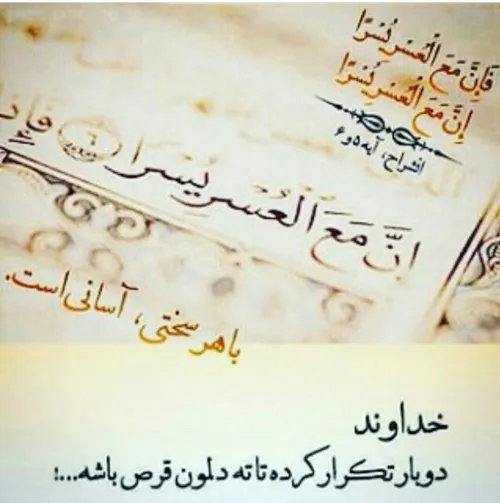 فَإِنَّ مَعَ الْعُسْرِ يُسْرًا
إِنَّ مَعَ الْعُسْرِ يُسْرًا
انشراح، آیه ۵و۶
إِنَّ مَعَ الْعُسْرِ يُسْرًا ۶
با هر سختی، آسانی است.
خداوند
دوبار تکرار کرده تا ته دلمون قرص باشه...!